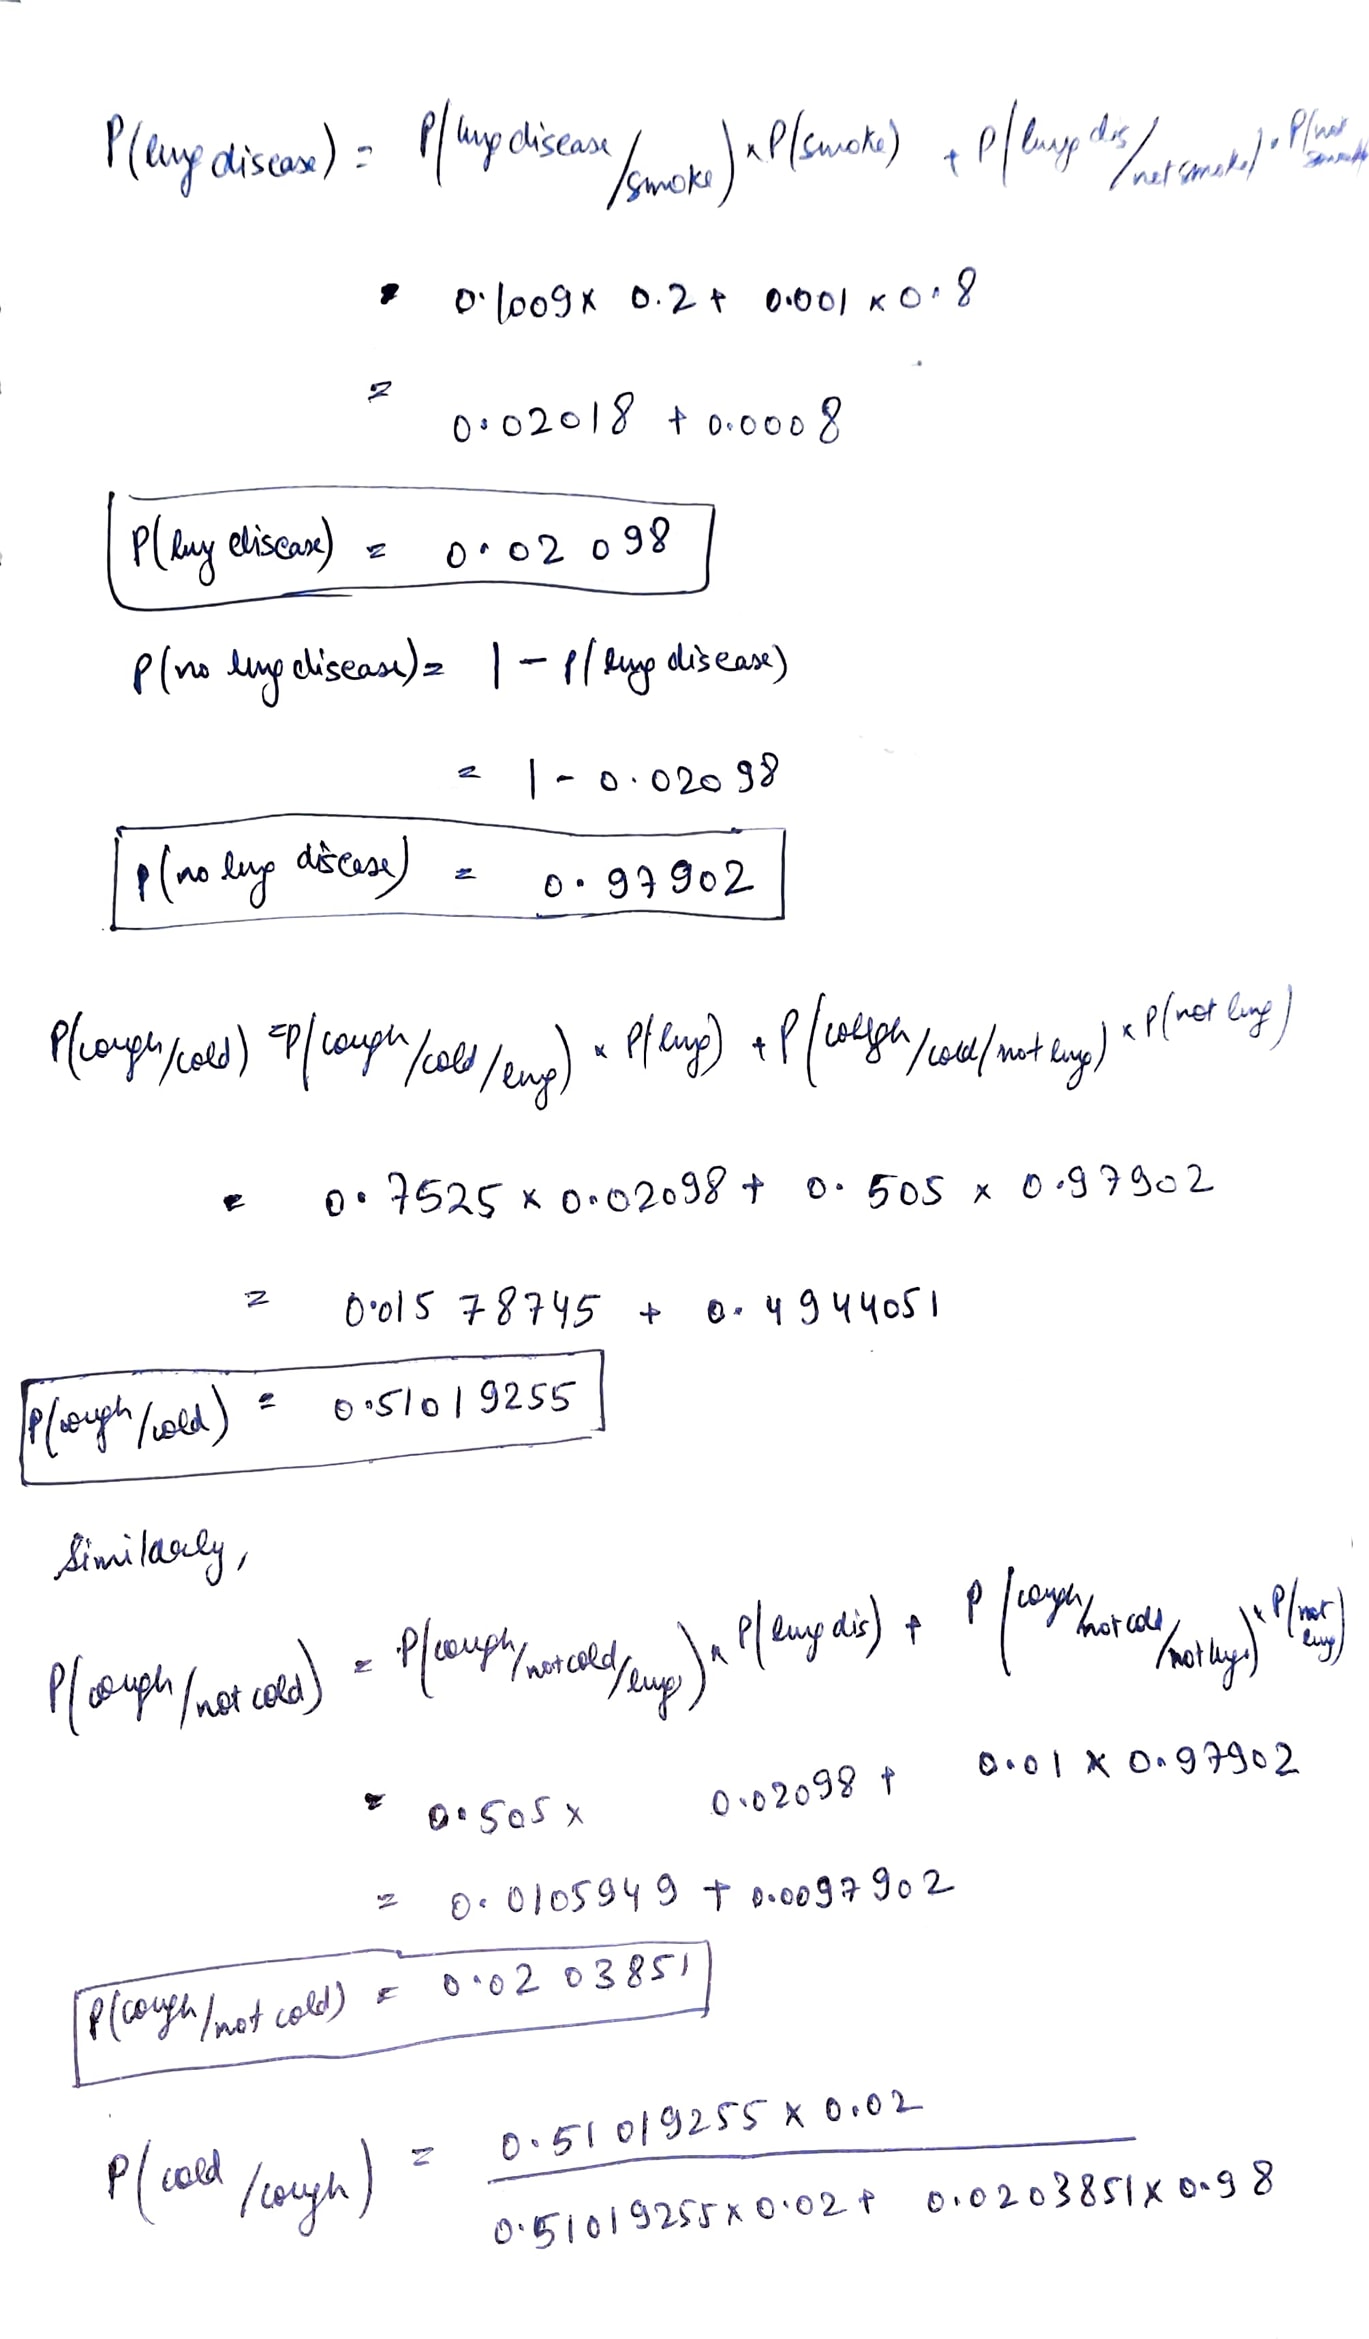 P(lung disease) = P(lung disease/smoke) x P(smoke) + P(lung dis/not smoke) x P(not smoke)
= 0.1009 x 0.2 + 0.001 x 0.8
= 0.02018 + 0.0008
P(lung disease) = 0.02098
P(no lung disease) = 1 - P(lung disease)
= 1 - 0.02098
P(no lung disease) = 0.97902
P(cough/cold) = P(cough/cold/lung) x P(lung) + P(cough/cold/not lung) x P(not lung)
= 0.7525 x 0.02098 + 0.505 x 0.97902
= 0.01578745 + 0.4944051
P(cough/cold) = 0.51019255
Similarly,
P(cough/not cold) = P(cough/not cold/lung) x P(lung dis) + P(cough/not cold/not lung) x P(not lung)
= 0.505 x 0.02098 + 0.01 x 0.97902
= 0.0105949 + 0.0097902
P(cough/not cold) = 0.0203851
P(cold/cough) = 0.51019255 x 0.02
0.51019255 x 0.02 + 0.0203851 x 0.98